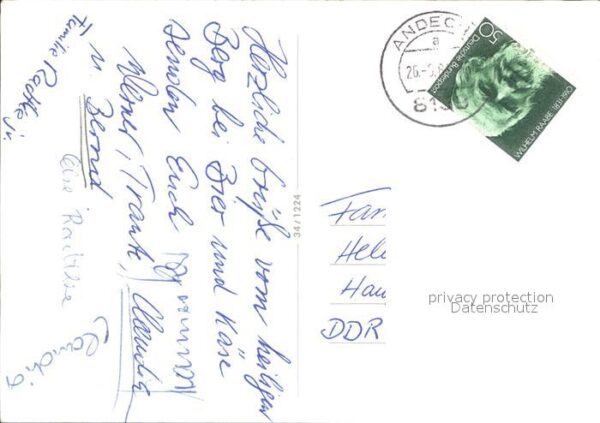 Herzliche Grüße vom heiligen
Berg bei Bier und Käse
senden Euch
Werner, Traute, Claudia
u. Bernd
Familie Radtke
Claudia
34/1224
ANDECHS
a
26.-
813
50
Deutsche Bundespost
WILHELM RAABE 1831-1910
Fam
Hel
Hau
DDR
privacy protection
Datenschutz